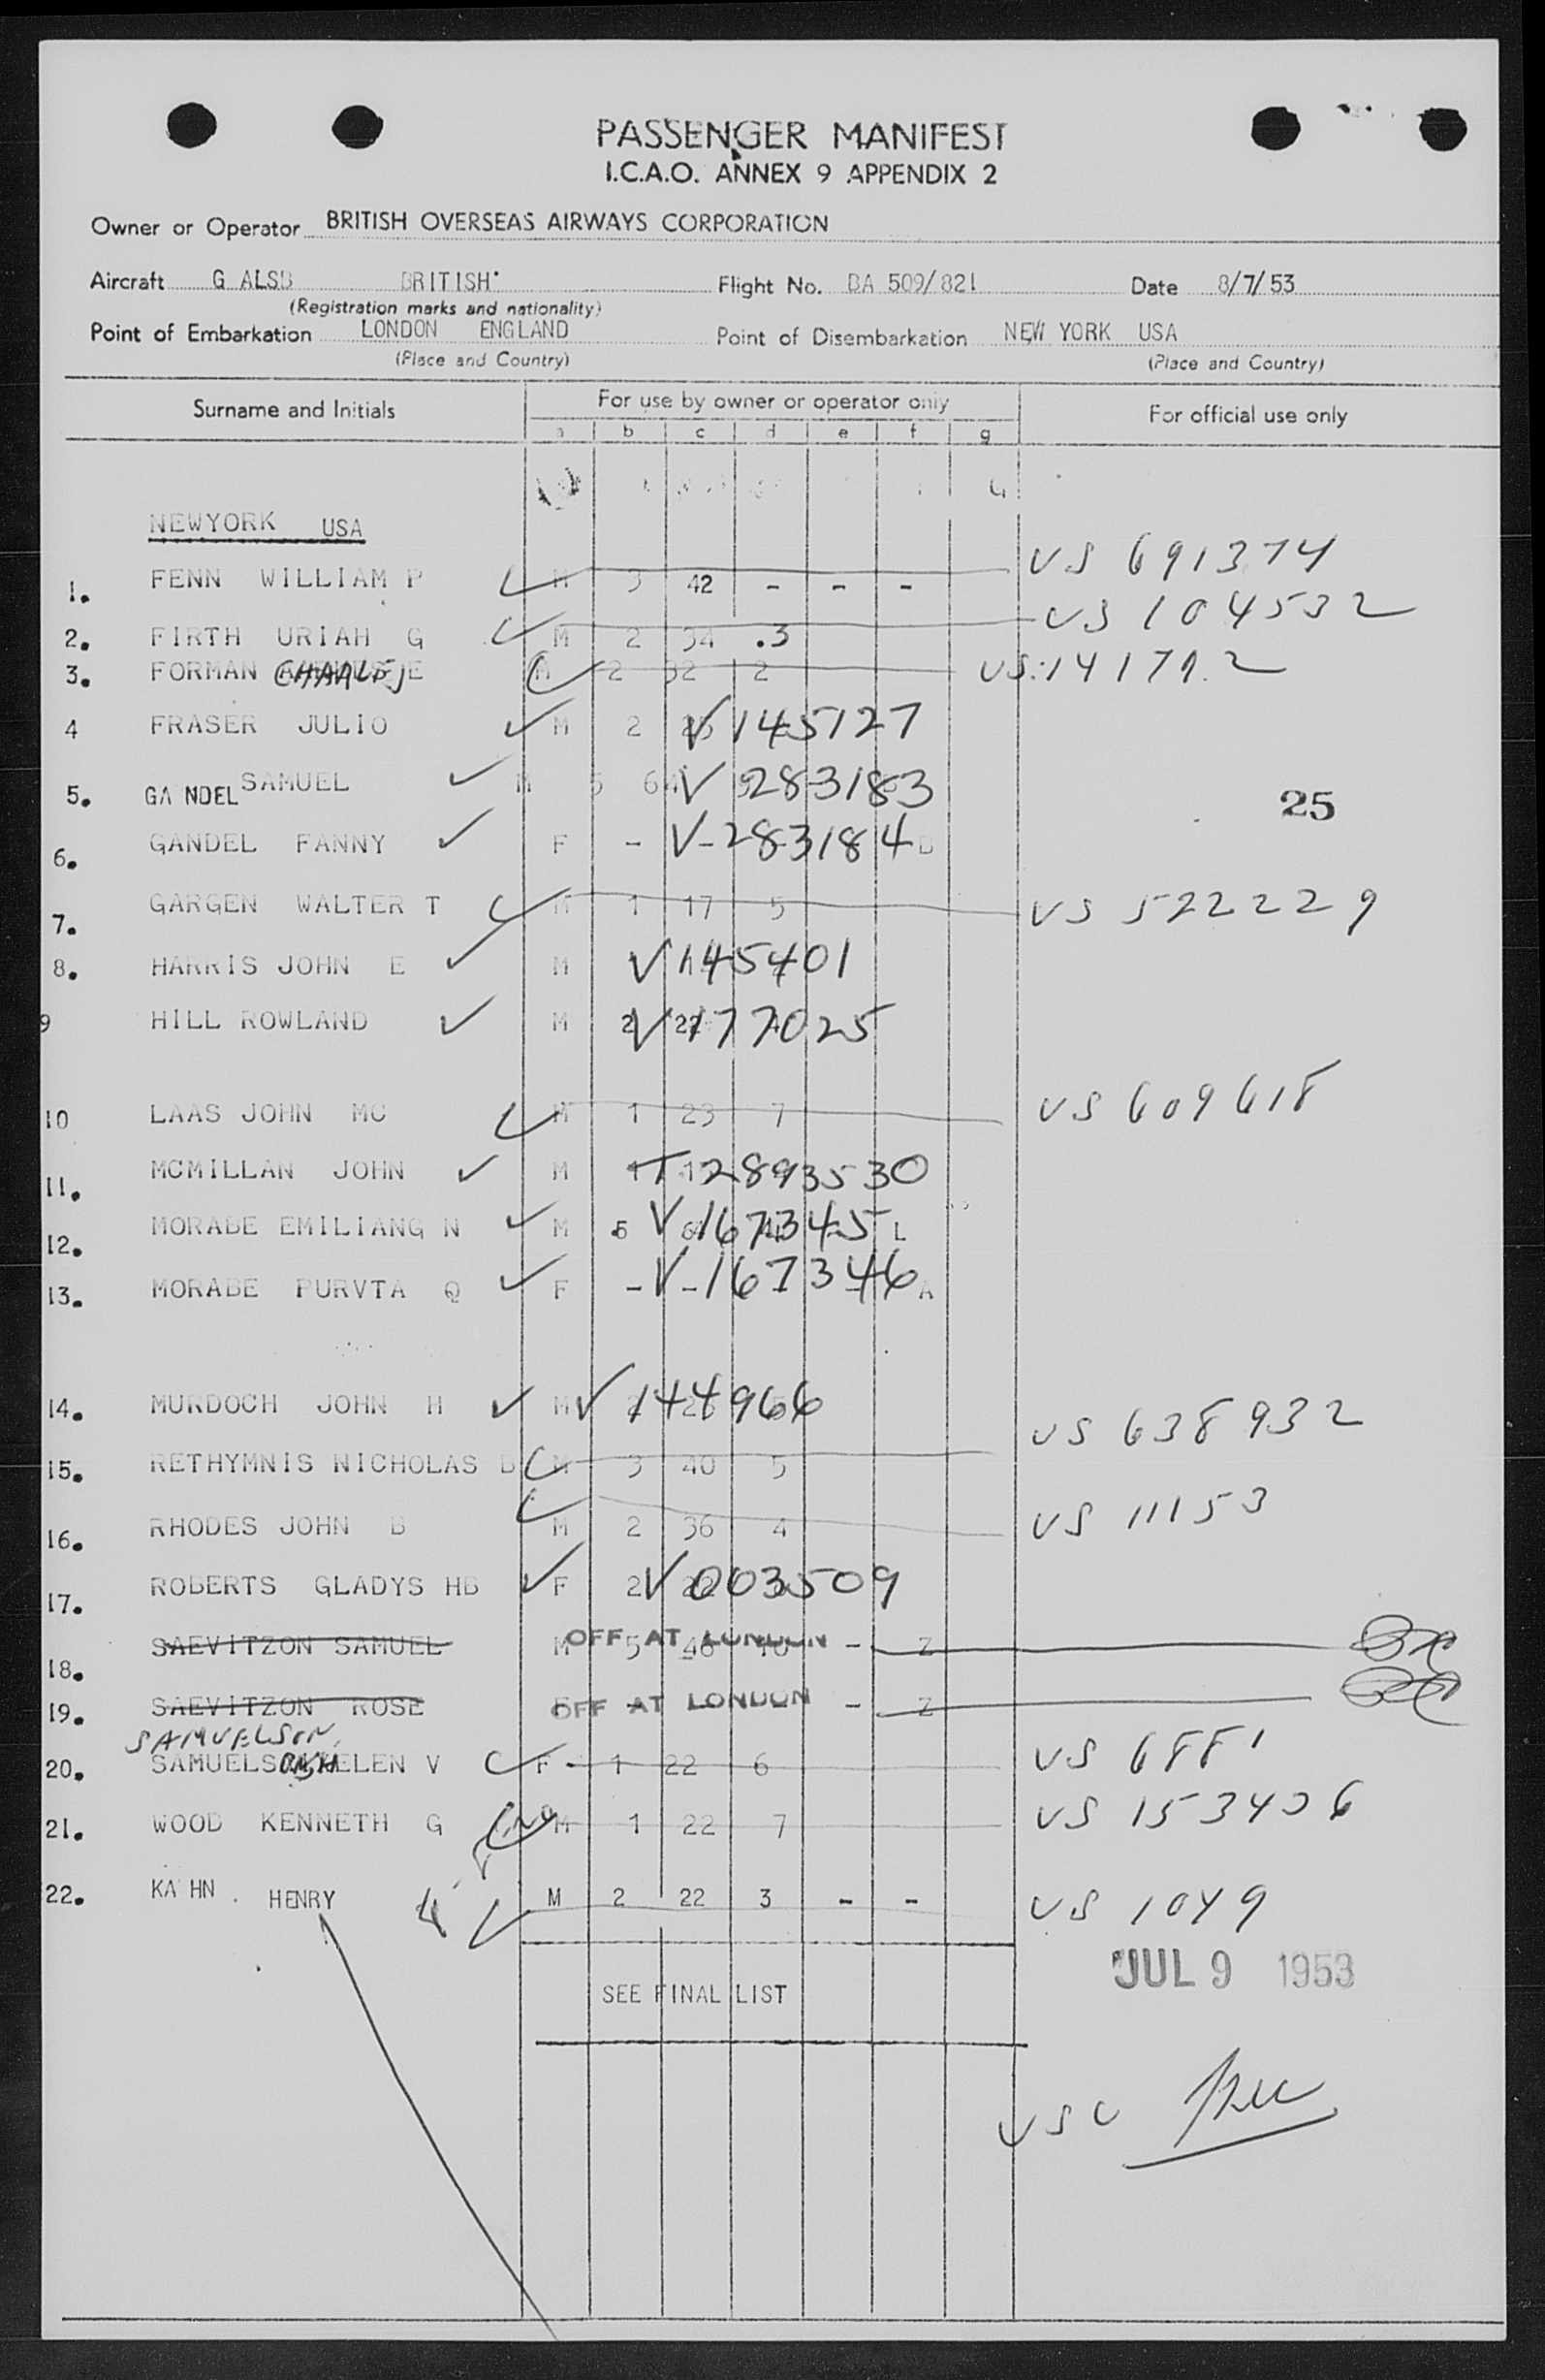 PASSENGER MANIFEST
I.C.A.O. ANNEX 9 APPENDIX 2
Owner or Operator BRITISH OVERSEAS AIRWAYS CORPORATION
Aircraft G ALSB BRITISH Flight No. BA 509/821 Date 8/7/53
(Registration marks and nationality)
Point of Embarkation LONDON ENGLAND Point of Disembarkation NEW YORK USA
(Place and Country) (Place and Country)
Surname and Initials For use by owner or operator only For official use only
a b c d e f g
NEWYORK USA
1. FENN WILLIAM P M 3 42 - - - US 691374
2. FIRTH URIAH G M 2 34 .3 US 104532
3. FORMAN CHARLES E M 2 32 2 US 141792
4 FRASER JULIO M 2 V 145127
5. GANDEL SAMUEL M 5 64 V 283183
6. GANDEL FANNY F - V-283184 B
25
7. GARGEN WALTER T M 1 17 5 US 522229
8. HARRIS JOHN E M V145401
9 HILL ROWLAND M 2 22 V177025
10 LAAS JOHN MC M 1 23 7 US 609618
11. MCMILLAN JOHN M T 2893530
12. MORABE EMILIANG N M 5 V 167345 L
13. MORABE PURVTA Q F - V-167346 A
14. MURDOCH JOHN H M V 144966
15. RETHYMNIS NICHOLAS D M 3 40 5 US 638932
16. RHODES JOHN B M 2 36 4 US 11153
17. ROBERTS GLADYS HB F 2 V 003509
18. SAEVITZON SAMUEL M 5 46 10 - Z OFF AT LONDON
19. SAEVITZON ROSE OFF AT LONDON - Z
SAMUELSON
20. SAMUELSON HELEN V F - 1 22 6 US 6881
21. WOOD KENNETH G M 1 22 7 US 153406
22. KAHN. HENRY M 2 22 3 - - US 1049
JUL 9 1953
SEE FINAL LIST
USC